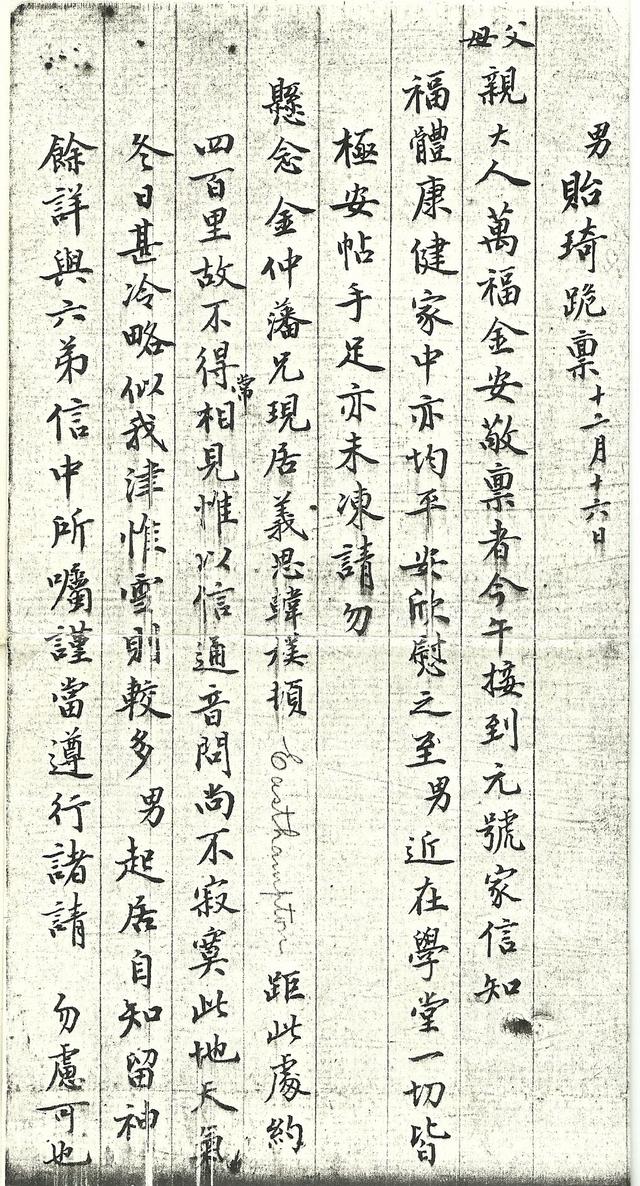 男貽琦跪稟十二月十六日
父母親大人萬福金安敬稟者今午接到元號家信知
福體康健家中亦均平安欣慰之至男近在學堂一切皆
極安帖手足亦未凍請勿
懸念金仲藩兄現居義思韓樸頓 Easthampton 距此處約
四百里故不得常相見惟以信通音問尚不寂寞此地天氣
冬日甚冷略似我津惟雪則較多男起居自知留神
餘詳與六弟信中所囑謹當遵行諸請 勿慮可也